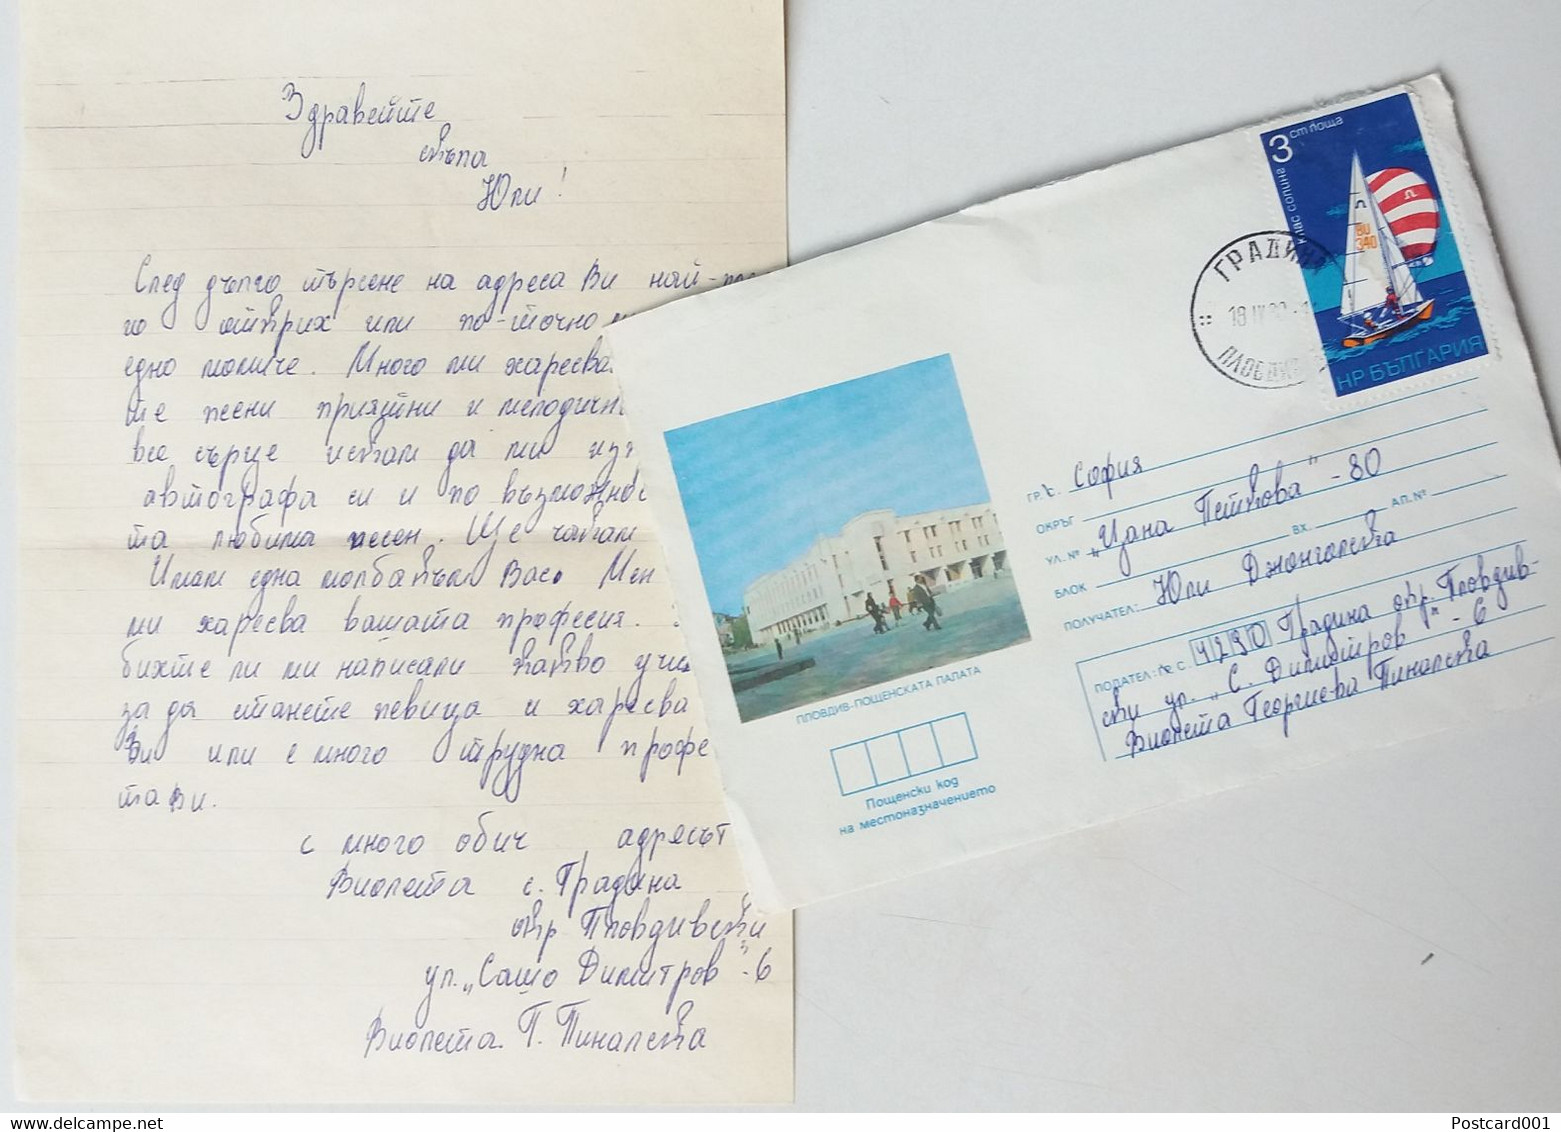 Здравейте
скъпа
Юли!
След дълго търсене на адреса Ви най-
го открих или по-точно
едно момиче. Много ми харесва
те песни приятни и мелодични
все сърце искам да ми
автографа си и по възможнос
та любима песен. Ще чакам
Имам една молба към Вас. Мен
ми харесва вашата професия.
бихте ли ми написали какво учи
за да станете певица и харесва
Ви или е много трудна профе
та Ви.
с много обич адресът
Виолета с. Градина
окр. Пловдивски
ул. „Сашо Димитров" - 6
Виолета Г. Пиналска
3 ст поща
клас солинг
BU
340
НР БЪЛГАРИЯ
ГРАДИН
ПЛОВДИВ
ГР. С. София
ОКРЪГ
УЛ. № „Цана Петкова" - 80
БЛОК ВХ. АП. №
ПОЛУЧАТЕЛ: Юли Джонгалска
ПОДАТЕЛ: ПК С. 4230 Градина окр. Пловдив-
ски ул. „С. Димитров" - 6
Виолета Георгиева Пиналска
ПЛОВДИВ-ПОЩЕНСКАТА ПАЛАТА
Пощенски код
на местоназначението
Postcard001